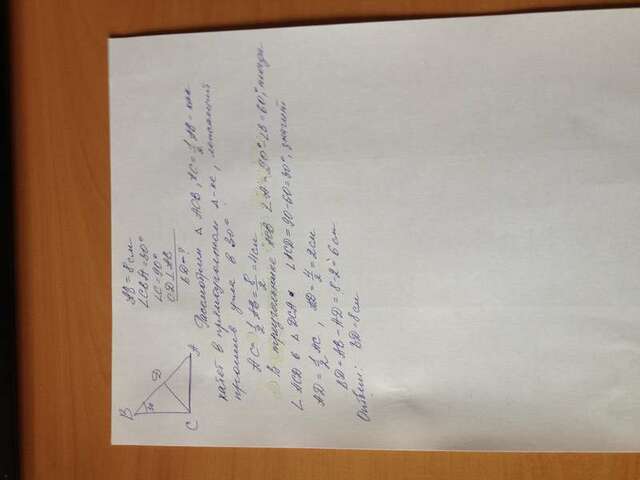 B
30
D
C
A
AB = 8 см
∠CBA = 30°
∠C = 90°
CD ⊥ AB
BD - ?
Рассмотрим Δ ACB, AC = 1/2 AB - как
катет в прямоугольном Δ-ке, лежащий
против угла в 30°
AC = 1/2 AB = 8/2 = 4 см
В треугольнике ACB ∠A = 90° - ∠B = 60°, тогда
∠ ACD в Δ DCA. ∠ACD = 90 - 60 = 30°, значит
AD = 1/2 AC, AD = 4/2 = 2 см
BD = AB - AD = 8 - 2 = 6 см
Ответ: BD = 8 см